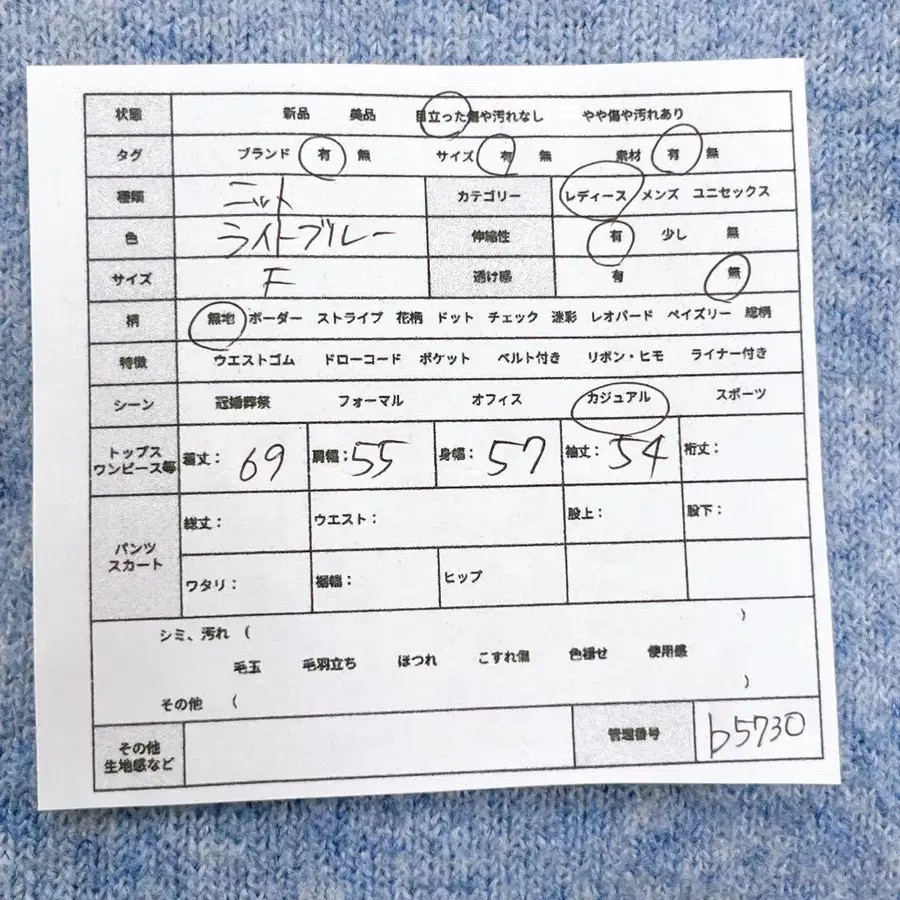 状態 新品 美品 目立った傷や汚れなし やや傷や汚れあり
タグ ブランド 有 無 サイズ 有 無 素材 有 無
種類 ニット カテゴリー レディース メンズ ユニセックス
色 ライトブルー 伸縮性 有 少し 無
サイズ F 透け感 有 無
柄 無地 ボーダー ストライプ 花柄 ドット チェック 迷彩 レオパード ペイズリー 総柄
特徴 ウエストゴム ドローコード ポケット ベルト付き リボン・ヒモ ライナー付き
シーン 冠婚葬祭 フォーマル オフィス カジュアル スポーツ
トップス
ワンピース等 着丈: 69 肩幅: 55 身幅: 57 袖丈: 54 裄丈:
パンツ
スカート 総丈: ウエスト: 股上: 股下:
ワタリ: 裾幅: ヒップ
シミ、汚れ ( )
毛玉 毛羽立ち ほつれ こすれ傷 色褪せ 使用感
その他 ( )
その他
生地感など 管理番号 b5730